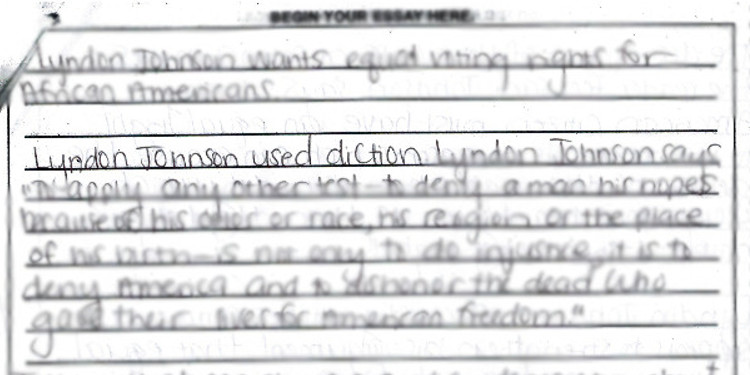 BEGIN YOUR ESSAY HERE
Lyndon Johnson wants equal voting rights for
African Americans.
Lyndon Jonnson used diction Lyndon Johnson says
"To apply any other test to deny a man his hopes
because of his color or race, his religion or the place
of his birth is not only to do injustice, it is to
deny America and to dishonor the dead who
gave their lives for American freedom."